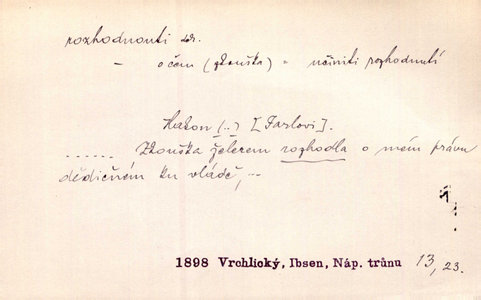 rozhodnouti dk.
– o čem (zkouška) = učiniti rozhodnutí
Hakon (..) [Jarlovi].
...... Zkouška železem rozhodla o mém právu
dědičném ku vládě, ...
1898 Vrchlický, Ibsen, Náp. trůnu 13, 23.